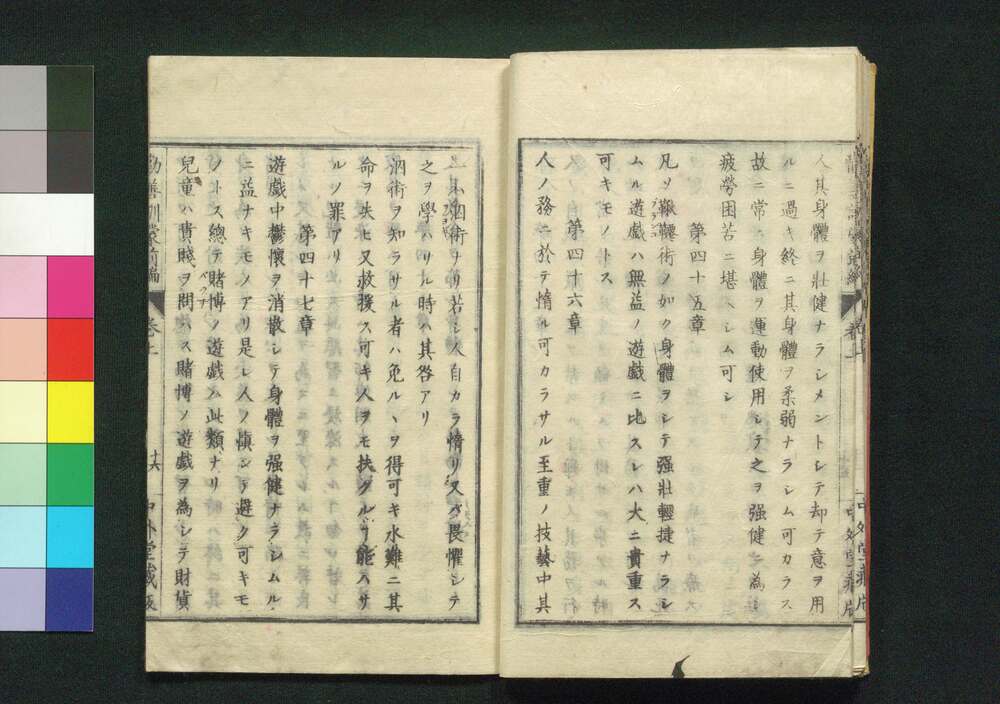 人其身體ヲ壯健ナラシメントシテ却テ意ヲ用
ルニ過キ終ニ其身體ヲ柔弱ナラシム可カラス
故ニ常ニ身體ヲ運動使用シテ之ヲ强健ニ為シ
疲勞困苦ニ堪ヘシム可シ
第四十五章
凡ソ鞦韆術ノ如ク身體ヲシテ强壯輕捷ナラシ
ムル遊戲ハ無益ノ遊戲ニ比スレハ大ニ貴重ス
可キモノトス
第四十六章
人ノ務ニ於テ惰ル可カラサル至重ノ技藝中其
一ハ泅術ナリ若シ人自カラ惰リ又ハ畏懼シテ
之ヲ學ハサル時ハ其咎アリ
泅術ヲ知ラサル者ハ免ルヽヲ得可キ水難ニ其
命ヲ失ヒ又救援ス可キ人ヲモ扶クル能ハサ
ルノ罪アリ
第四十七章
遊戲中鬱懷ヲ消散シテ身體ヲ强健ナラシムル
ニ益ナキモノアリ是レ人ノ愼シテ避ク可キモ
ノトス總テ賭博ノ遊戲ハ此類ナリ
兒童ハ貴賤ヲ問ハス賭博ノ遊戲ヲ為シテ財貨
勸善訓蒙前編
卷上
十六
中外堂藏版